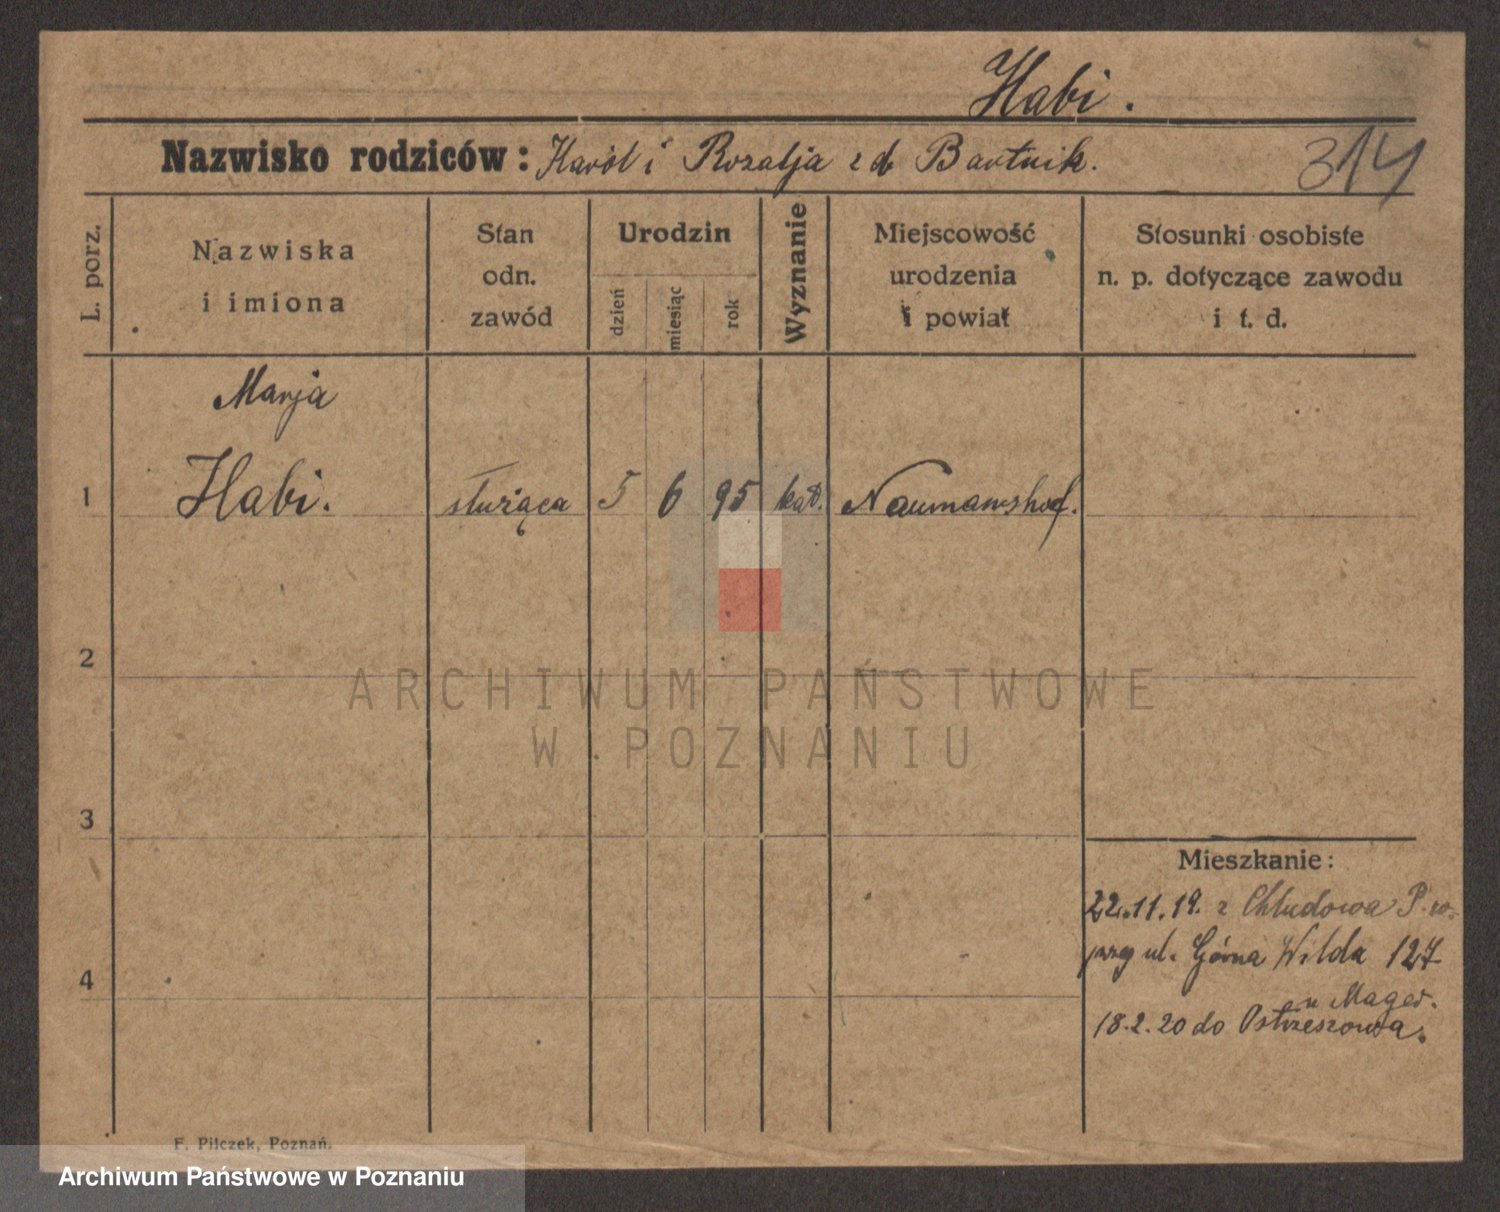 Habi.
Nazwisko rodziców: Karól i Rozalja z d. Bartnik.
314
L. porz.
Nazwiska
i imiona
Stan
odn.
zawód
Urodzin
dzień
miesiąc
rok
Wyznanie
Miejscowość
urodzenia
i powiat
Stosunki osobiste
n. p. dotyczące zawodu
i t. d.
Marja
1 Habi. służąca 5 6 95 kat. Naumanshof.
2
ARCHIWUM PAŃSTWOWE
W POZNANIU
3
4
Mieszkanie:
22.11.19. z Chludowa P. w.
przy ul. Górna Wilda 127
u Mager.
18.2.20 do Ostrzeszowa.
F. Pilczek, Poznań.
Archiwum Państwowe w Poznaniu